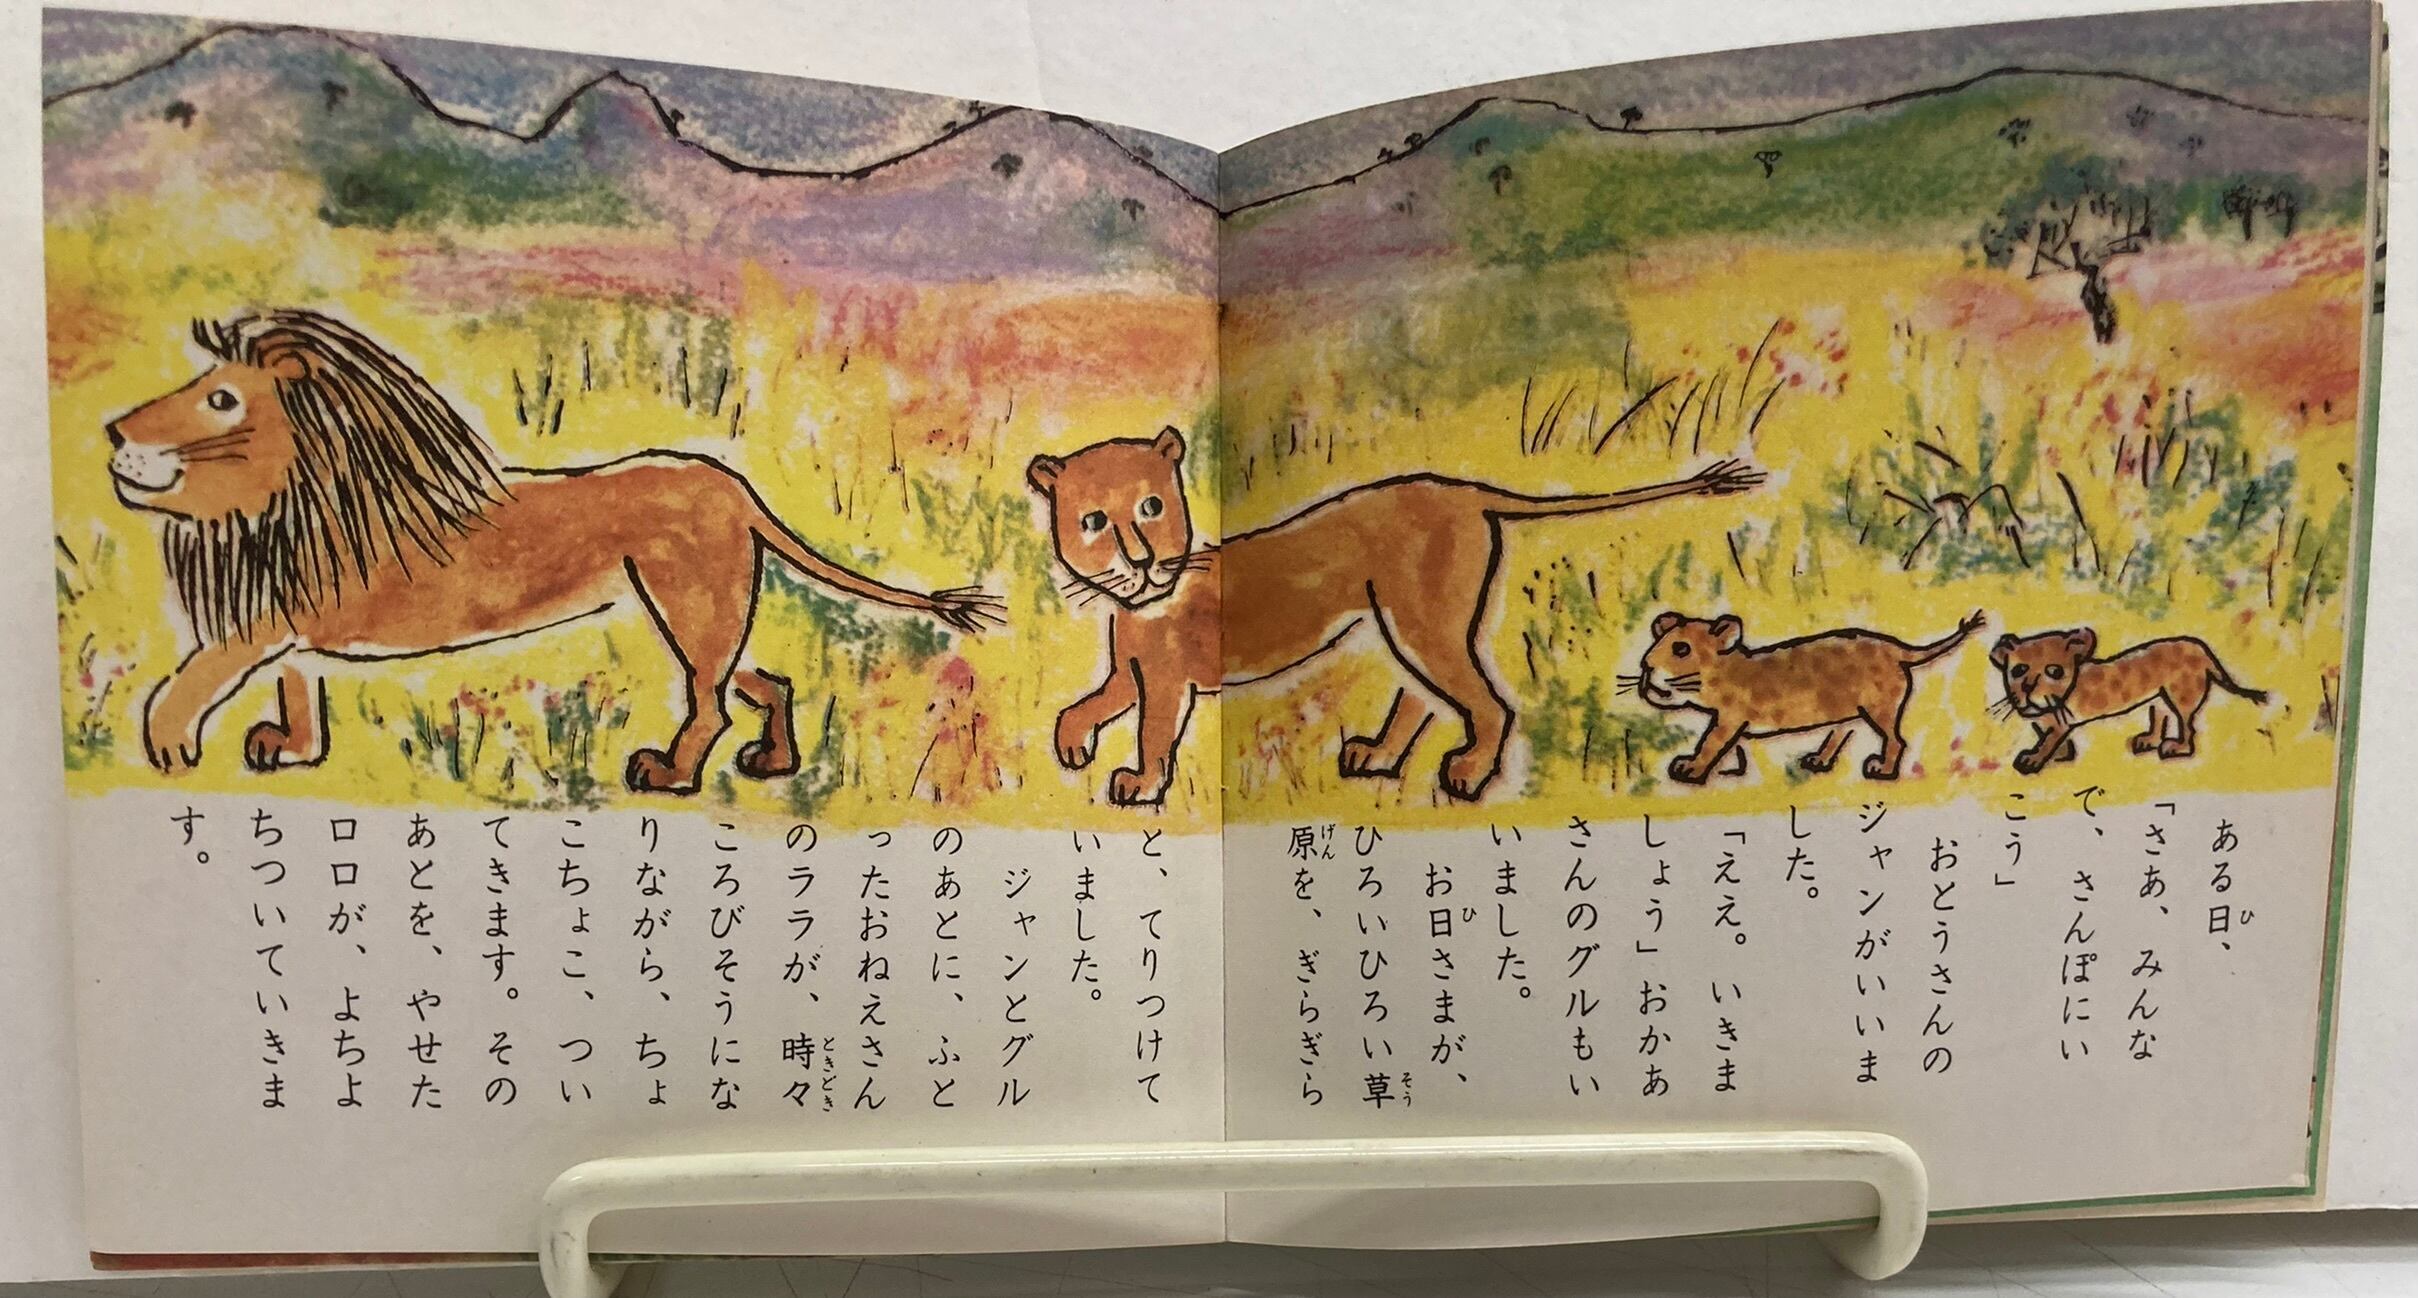 ある日、
「さあ、みんな
で、さんぽにい
こう」
おとうさんの
ジャンがいいま
した。
「ええ。いきま
しょう」おかあ
さんのグルもい
いました。
お日さまが、
ひろいひろい草
原を、ぎらぎら
と、てりつけて
いました。
ジャンとグル
のあとに、ふと
ったおねえさん
のララが、時々
ころびそうにな
りながら、ちょ
こちょこ、つい
てきます。その
あとを、やせた
ロロが、よちよ
ちついていきま
す。